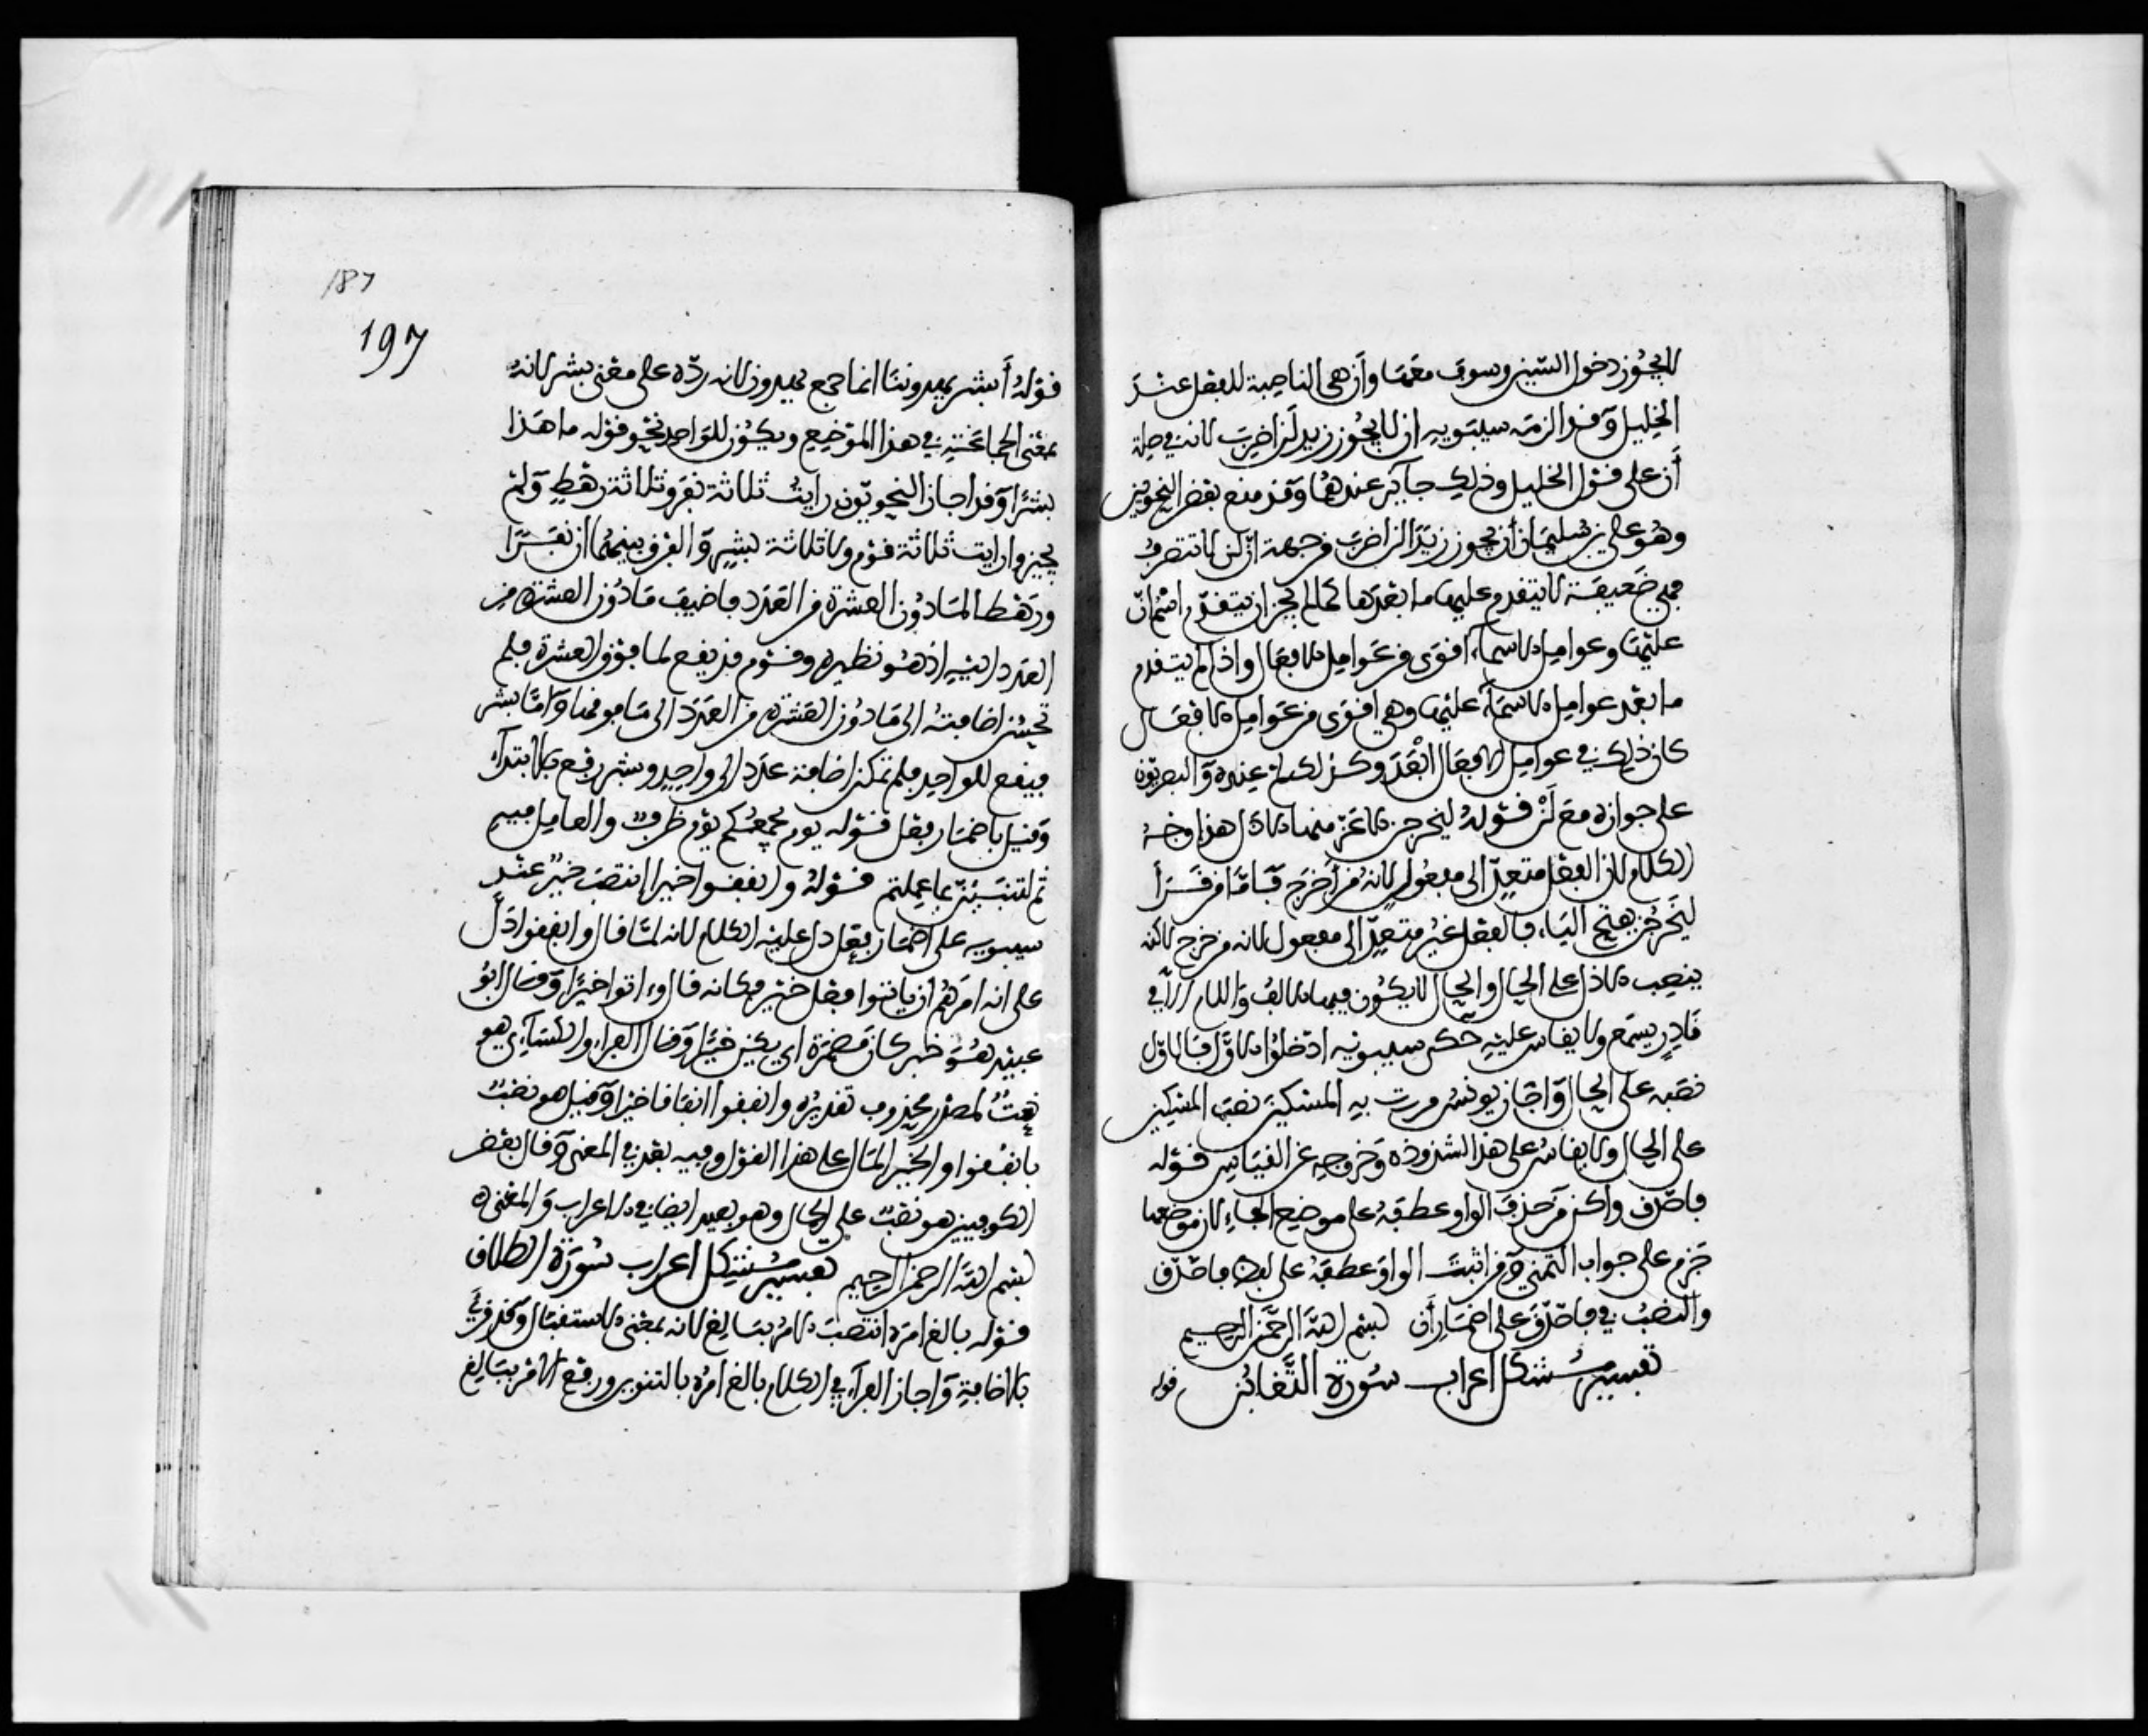 لا يجوز دخول السين وسوف معها وأن هي الناصبة للفعل عند
الخليل وقد الزمه سيبويه ان لا يجوز زيد لن اضرب لانه في صلة
أن على قول الخليل وذلك جائز عندهما وقد منع بعض النحويين
وهو علي بن سليمان أن يجوز زيدا لن اضرب من جهة أن لن لا تتصرف
فهي ضعيفة لا يتقدم عليها ما بعدها كما لم يجز ان يتقدم اسم ان
عليها وعوامل الاسماء اقوى من عوامل الافعال واذا لم يتقدم
ما بعد عوامل الاسماء عليها وهي اقوى من عوامل الافعال
كان ذلك في عوامل الافعال ابعد وكذلك لم عنده والبصريون
على جوازه مع لن قوله ليخرجن الاعز منها الاذل هذا وجه
الكلام لان الفعل متعد الى مفعول لانه من أخرج فاما من قرأ
ليخرجن بفتح الياء فالفعل غير متعد الى مفعول لانه من خرج لاكنه
ينصب الاذل على الحال والحال لا يكون فيها الالف واللام الا في
نادر يسمع ولا يقاس عليه حكى سيبويه ادخلوا الاول فالاول
نصبه على الحال واجاز يونس مررت به المسكين نصب المسكين
على الحال ولا يقاس على هذا لشذوذه وخروجه عن القياس قوله
فاصدق واكن من حذف الواو عطفه على موضع الفاء لان موضعها
جزم على جواب التمني ومن اثبت الواو عطفه على لفظ فاصدق
والنصب في فاصدق على اضمار أن بسم الله الرحمن الرحيم
تفسير مشكل اعراب سورة التغابن قوله
187
197
قوله أبشر يهدوننا انما جمع يهدون لانه رده على معنى بشر لانه
بمعنى الجماعة في هذا الموضع ويكون للواحد نحو قوله ما هذا
بشرا وقد اجاز النحويون رايت ثلاثة نفر وثلاثة رهط ولم
يجيزوا رايت ثلاثة قوم ولا ثلاثة بشر والفرق بينهما ان نفرا
ورهطا لما دون العشرة من العدد فاضيف ما دون العشرة من
العدد اليه اذ هو نظيره وقوم قد يقع لما فوق العشرة فلم
تحسن اضافته الى ما دون العشرة من العدد الى ما فوقها واما بشر
فيقع للواحد فلم تمكن اضافة عدد الى واحد وبشر رفع بالابتداء
وقيل باضمار فعل قوله يوم يجمعكم يوم ظرف والعامل فيه
ثم لتنبئن بما عملتم قوله وانفقوا خيرا انتصب خير عند
سيبويه على اضمار فعل دل عليه الكلام لانه لما قال وانفقوا دل
على انه امرهم ان ياتوا فعل خير فكانه قال وءاتوا خيرا وقال ابو
عبيد هو خبر كان مضمرة اي يكن خيرا وقال الفراء والكسائي هو
نعت لمصدر محذوف تقديره وانفقوا انفاقا خيرا وقيل هو نصب
بانفقوا والخير المال على هذا القول وفيه بعد في المعنى وقال بعض
الكوفيين هو نصب على الحال وهو بعيد ايضا في الاعراب والمعنى
بسم الله الرحمن الرحيم تفسير مشكل اعراب سورة الطلاق
قوله بالغ امره انتصب الامر ببالغ لانه بمعنى الاستقبال وقد قرئ
بالاضافة واجاز الفراء في الكلام بالغ امره بالتنوين ورفع الامر ببالغ